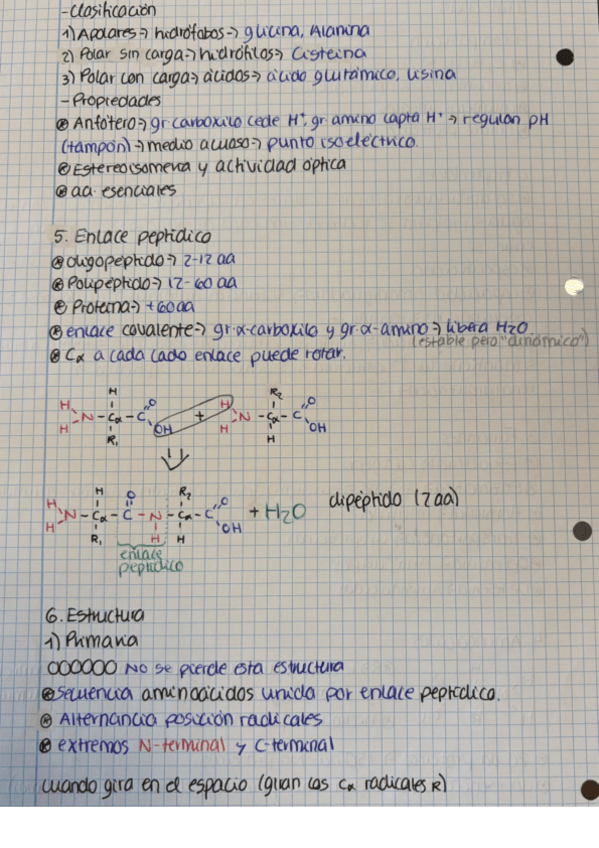 -Clasificación
1) Apolares → hidrófobos → glicina, Alanina
2) Polar sin carga → hidrófilos → Cisteína
3) Polar con carga → ácidos → ácido glutámico, lisina
- Propiedades
⊛ Anfótero → gr. carboxilo cede H⁺, gr amino capta H⁺ → regulan pH
(tampón) → medio acuoso → punto isoeléctrico.
⊛ Estereoisomería y actividad óptica
⊛ aa. esenciales
5. Enlace peptídico
⊛ oligopéptido → 2-12 aa
⊛ Polipéptido → 12-60 aa
⊛ Proteína → +60 aa
⊛ enlace covalente → gr-α-carboxilo y gr α-amino → libera H₂O
(estable pero "dinámico")
⊛ Cα a cada lado enlace puede rotar.
H R₂
H O H O
N - Cα - C + N - Cα - C
H R₁ OH H H OH
H O R₂
H O
N - Cα - C - N - Cα - C + H₂O dipéptido (2 aa)
H R₁ H H OH
enlace
peptídico
6. Estructura
1) Primaria
OOOOOO NO se pierde esta estructura
⊛ secuencia aminoácidos unida por enlace peptídico.
⊛ Alternancia posición radicales
⊛ extremos N-terminal y C-terminal
cuando gira en el espacio (giran los Cα radicales R)